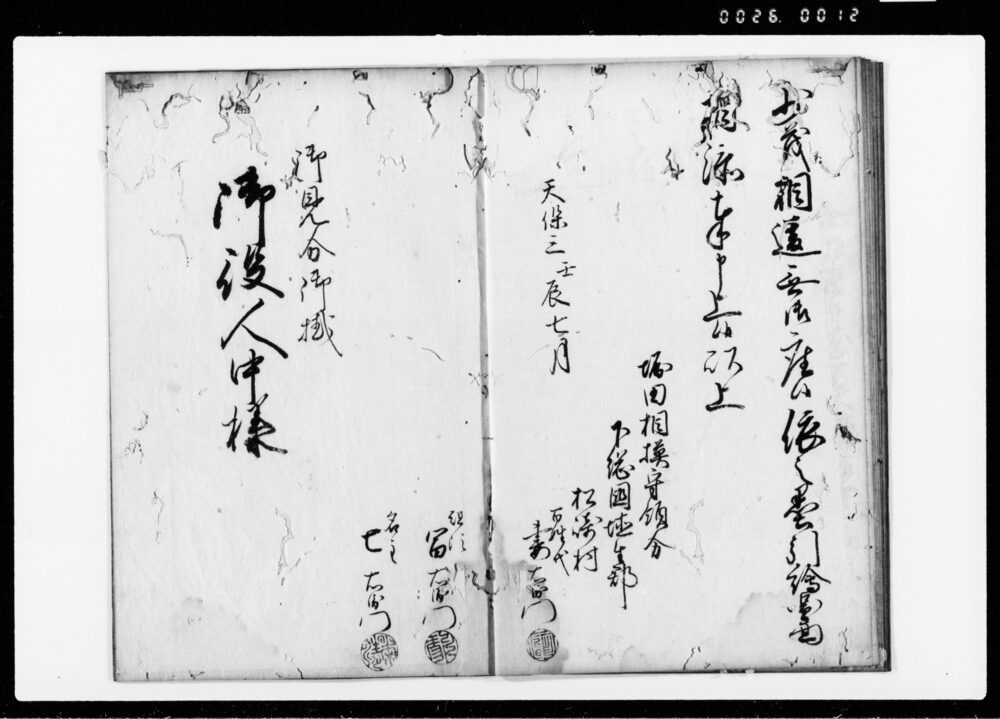 0026. 0012
少茂相違無御座候依之墨引絵図面
相添奉申上候以上
堀田相模守領分
下総国埴生郡
松崎村
百姓代
天保三壬辰七月
右衛門
組頭
富右衛門
名主
七右衛門
御見分御掛
御役人中様